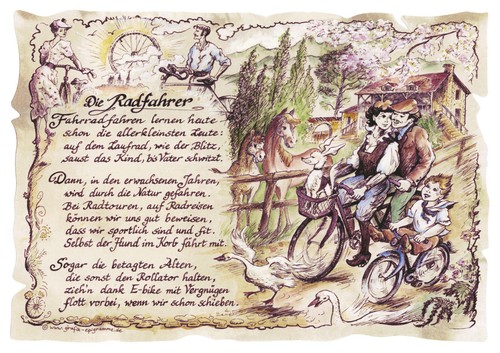 Die Radfahrer
Fahrradfahren lernen heute
schon die allerkleinsten Leute:
auf dem Laufrad, wie der Blitz,
saust das Kind, bis Vater schwitzt.
Dann, in den erwachsenen Jahren,
wird durch die Natur gefahren.
Bei Radtouren, auf Radreisen
können wir uns gut beweisen,
dass wir sportlich sind und fit.
Selbst der Hund im Korb fährt mit.
Sogar die betagten Alten,
die sonst den Rollator halten,
zieh'n dank E-bike mit Vergnügen
flott vorbei, wenn wir schon schieben.
© www.grafik-epigramme.de